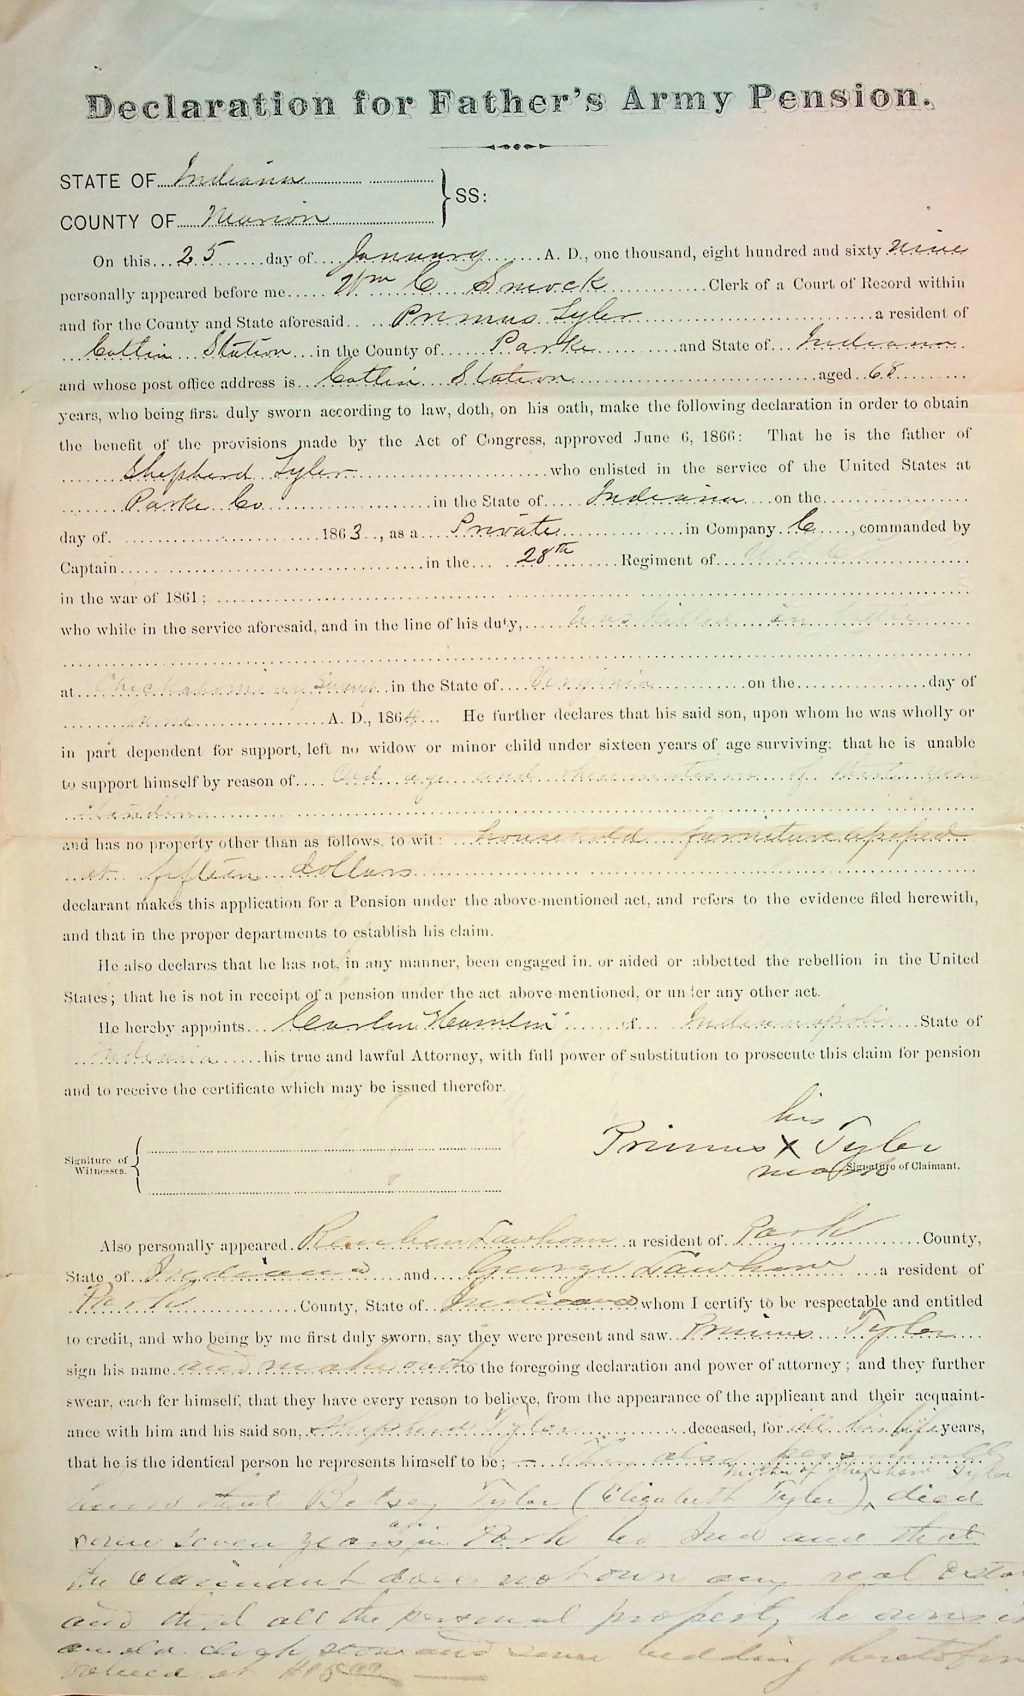 Declaration for Father's Army Pension.
STATE OF Indiana
COUNTY OF Marion } SS:
On this 25 day of January A. D., one thousand, eight hundred and sixty nine
personally appeared before me Wm C Smock Clerk of a Court of Record within
and for the County and State aforesaid Primus Tyler a resident of
Catlin Station in the County of Parke and State of Indiana
and whose post office address is Catlin Station aged 68
years, who being first duly sworn according to law, doth, on his oath, make the following declaration in order to obtain
the benefit of the provisions made by the Act of Congress, approved June 6, 1866: That he is the father of
Shepherd Tyler who enlisted in the service of the United States at
Parke Co in the State of Indiana on the
day of 1863, as a Private in Company C, commanded by
Captain in the 28th Regiment of U.S.C.
in the war of 1861;
who while in the service aforesaid, and in the line of his duty, was killed in battle
at Chickahominy Swamp in the State of Virginia on the day of
June A. D., 1864 He further declares that his said son, upon whom he was wholly or
in part dependent for support, left no widow or minor child under sixteen years of age surviving; that he is unable
to support himself by reason of Old age and rheumatism of thirty years
standing
and has no property other than as follows, to wit: household furniture
at fifteen dollars
declarant makes this application for a Pension under the above-mentioned act, and refers to the evidence filed herewith,
and that in the proper departments to establish his claim.
He also declares that he has not, in any manner, been engaged in, or aided or abbetted the rebellion in the United
States; that he is not in receipt of a pension under the act above mentioned, or under any other act.
He hereby appoints Carlin Hamlin of Indianapolis State of
Indiana his true and lawful Attorney, with full power of substitution to prosecute this claim for pension
and to receive the certificate which may be issued therefor.
his
Primus X Tyler
mark
Signature of Claimant.
Signiture of
Witnesses. {
Also personally appeared Reuben Lawhorn a resident of Park County,
State of Indiana and George Lawhorn a resident of
Park County, State of Indiana whom I certify to be respectable and entitled
to credit, and who being by me first duly sworn, say they were present and saw Primus Tyler
sign his name and mark to the foregoing declaration and power of attorney; and they further
swear, each for himself, that they have every reason to believe, from the appearance of the applicant and their acquaint-
ance with him and his said son, Shepherd Tyler deceased, for all his life years,
that he is the identical person he represents himself to be; — They also
mother of Shepherd Tyler
know that Betsey Tyler (Elizabeth Tyler), died
some seven years ago in Park Co Ind and that
the claimant does not own any real Estate
and that all the personal property he owns is
an old stove and some bedding heretofore
valued at $15.00